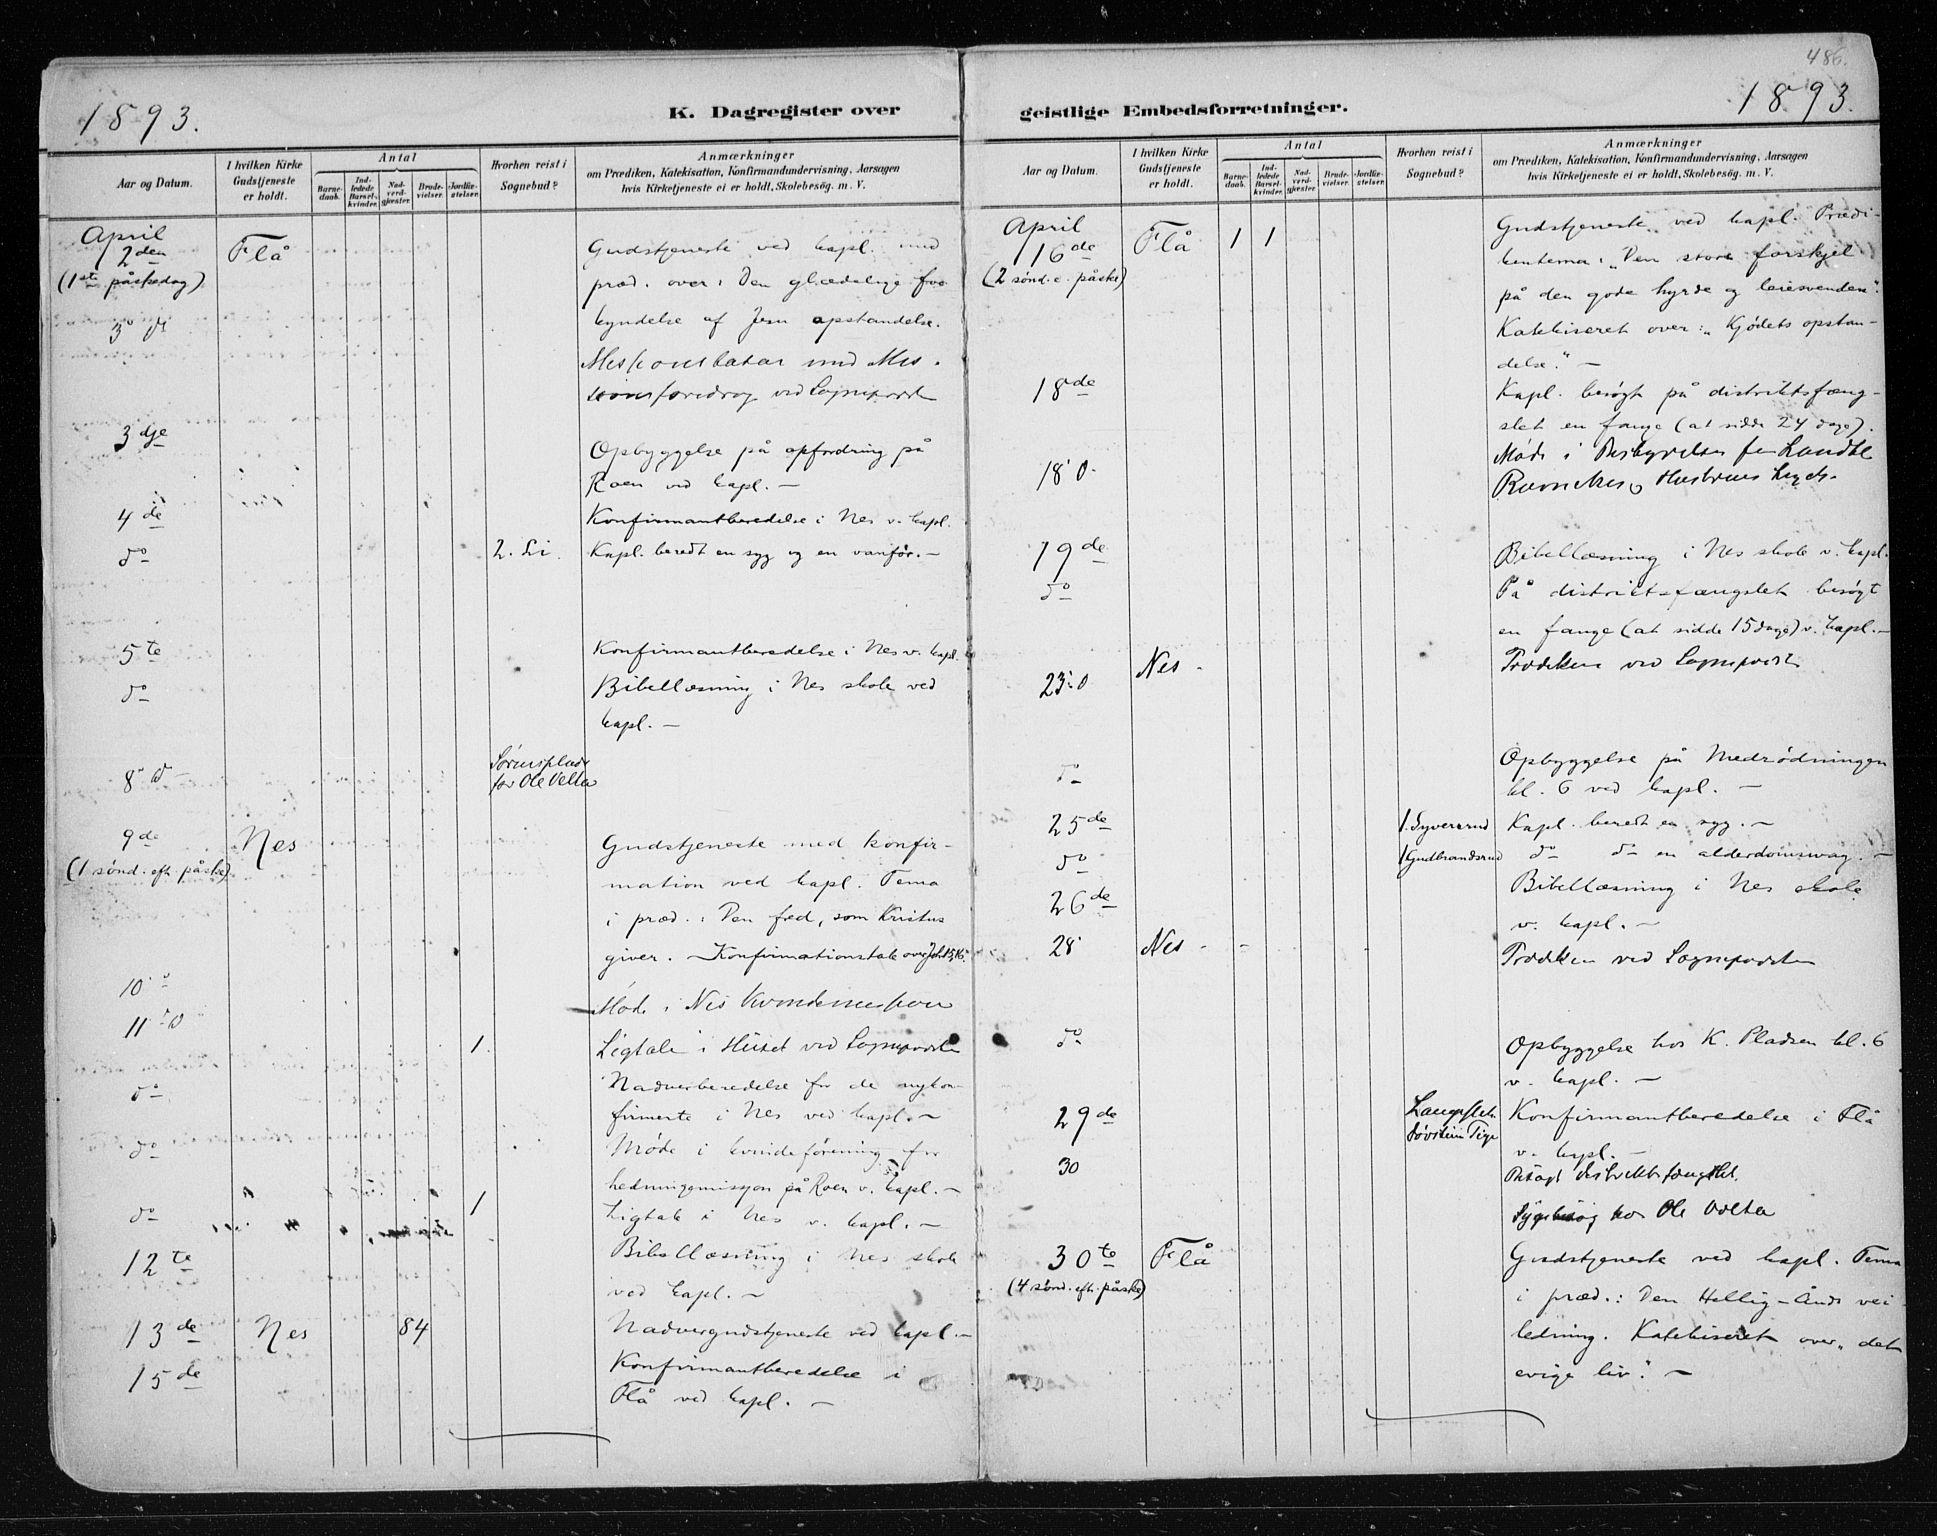 1893.
K. Dagregister over
Aar og Datum.
I hvilken Kirke Gudstjeneste er holdt.
Antal
Barne-daab.
Ind-ledede Barsel-kvinder.
Nad-verd-gjæster.
Brude-vielser.
Jordfæ-stelser.
Hvorhen reist i Sognebud?
Anmærkninger
om Prædiken, Katekisation, Konfirmandundervisning, Aarsagen
hvis Kirketjeneste ei er holdt, Skolebesøg. m. V.
April
2den Flå Gudstjeneste ved kapl. med
(1ste påskedag) præd. over: Den glædelige for-
kyndelse af Jesu opstandelse.
med Mis-
sionsforedrag ved Sognepræsten
3dje Opbyggelse på opfordring på
Roen ved kapl. –
4de Konfirmantberedelse i Nes v. kapl.
do 2. Li. Kapl. beredt en syg og en vanfør. –
5te Konfirmantberedelse i Nes v. kapl.
do Bibellæsning i Nes skole ved
kapl. –
8
for Ole Velta
9de Nes Gudstjeneste med konfir-
(1 sønd. eft. påske) mation ved kapl. Tema
i præd.: Den fred, som Kristus
giver. – Konfirmationstale over Joh. 15,16.
10 Møde i Nes
11 1. Ligtale i Huset ved Sognepræsten
do Nadverberedelse for de nykon-
firmerte i Nes ved kapl. –
do Møde i kvindeforening for
hedningemissjon på Roen v. kapl. –
do 1 Ligtale i Nes v. kapl. –
12te Bibellæsning i Nes skole
ved kapl. –
13de Nes 84 Nadvergudstjeneste ved kapl. –
15de Konfirmantberedelse i
Flå ved kapl. –
486.
1893.
geistlige Embedsforretninger.
Aar og Datum.
I hvilken Kirke Gudstjeneste er holdt.
Antal
Barne-daab.
Ind-ledede Barsel-kvinder.
Nad-verd-gjæster.
Brude-vielser.
Jordfæ-stelser.
Hvorhen reist i Sognebud?
Anmærkninger
om Prædiken, Katekisation, Konfirmandundervisning, Aarsagen
hvis Kirketjeneste ei er holdt, Skolebesøg. m. V.
April
16de Flå 1 1 Gudstjeneste ved kapl. Prædi-
(2 sønd. e. påske) kentema: „Den store forskjel
på den gode hyrde og leiesvenden".
Katekiseret over: „Kjødets opstan-
delse." –
18de Kapl. besøgt på distriktsfæng-
slet en fange (at sidde 24 dage).
18 Møde i Bestyrelsen for
19de Bibellæsning i Nes skole v. kapl.
do På distriktsfængslet besøgt
en fange (at sidde 15 dage) v. kapl. –
23 Nes. Prædiken ved Sognepræsten
do Opbyggelse på Medrødningen
kl. 6 ved kapl. –
25de 1. Syversrud Kapl. beredt en syg. –
do 1 Gudbrandsrud do do en alderdomssvag. –
26de Bibellæsning i Nes skole
v. kapl. –
28 Nes. Prædiken ved Sognepræsten
do Opbyggelse hos K. Pladsen kl. 6
v. kapl. –
29de Konfirmantberedelse i Flå
v. kapl. –
30 Besøgt distriktsfængslet.
Sygebesøg hos Ole Velta
30te Flå Gudstjeneste ved kapl. Tema
(4 sønd. eft. påske) i præd.: Den Hellig-Ånds vei-
ledning. Katekiseret over „det
evige liv." –